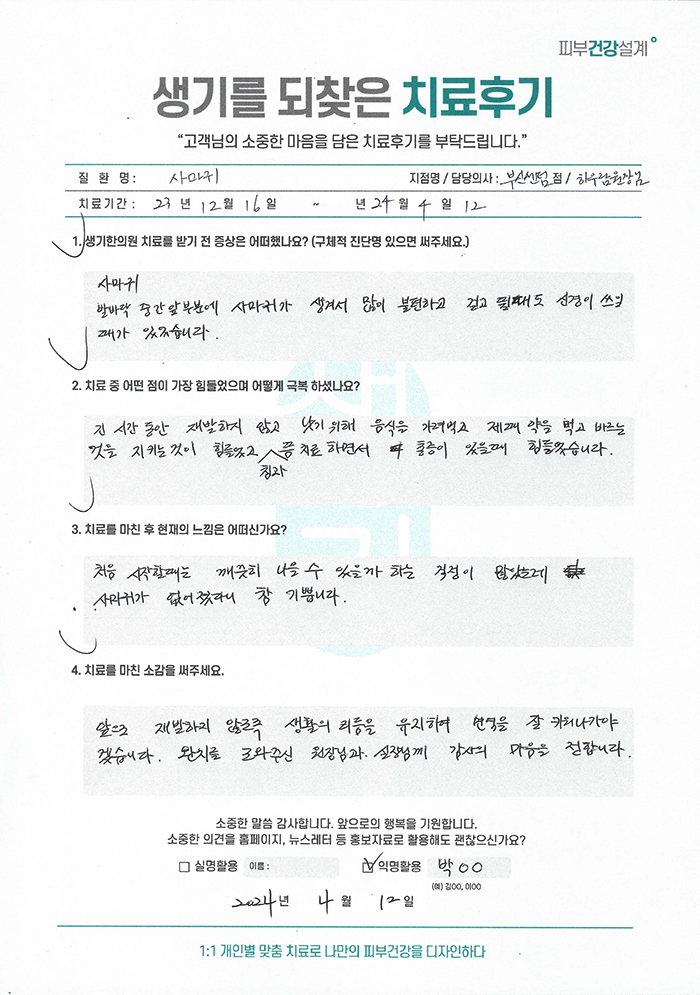 피부건강설계
생기를 되찾은 치료후기
“고객님의 소중한 마음을 담은 치료후기를 부탁드립니다.”
질 환 명 : 사마귀 지점명 / 담당의사 : 부산센텀점 / 하우람원장님
치료기간 : 23 년 12 월 16 일 ~ 년 24 월 4 일 12
1. 생기한의원 치료를 받기 전 증상은 어떠했나요? (구체적 진단명 있으면 써주세요.)
사마귀
발바닥 중간 앞부분에 사마귀가 생겨서 많이 불편하고 걷고 뛸때도 신경이 쓰일
때가 있었습니다.
2. 치료 중 어떤 점이 가장 힘들었으며 어떻게 극복 하셨나요?
긴 시간 동안 재발하지 않고 낫기 위해 음식을 가려먹고 제때 약을 먹고 바르는
것을 지키는것이 힘들었고 침과 뜸치료 하면서 통증이 있을때 힘들었습니다.
3. 치료를 마친 후 현재의 느낌은 어떠신가요?
처음 시작할때는 깨끗히 나을 수 있을까 하는 걱정이 많았는데
사마귀가 없어졌다니 참 기쁩니다.
4. 치료를 마친 소감을 써주세요.
앞으로 재발하지 않도록 생활의 리듬을 유지하여 면역을 잘 키워나가야
겠습니다. 완치를 도와주신 원장님과 실장님께 감사의 마음을 전합니다.
소중한 말씀 감사합니다. 앞으로의 행복을 기원합니다.
소중한 의견을 홈페이지, 뉴스레터 등 홍보자료로 활용해도 괜찮으신가요?
실명활용 이름 : 익명활용 박○○
(예) 김OO, 이OO
2024 년 4 월 12 일
1:1 개인별 맞춤 치료로 나만의 피부건강을 디자인하다